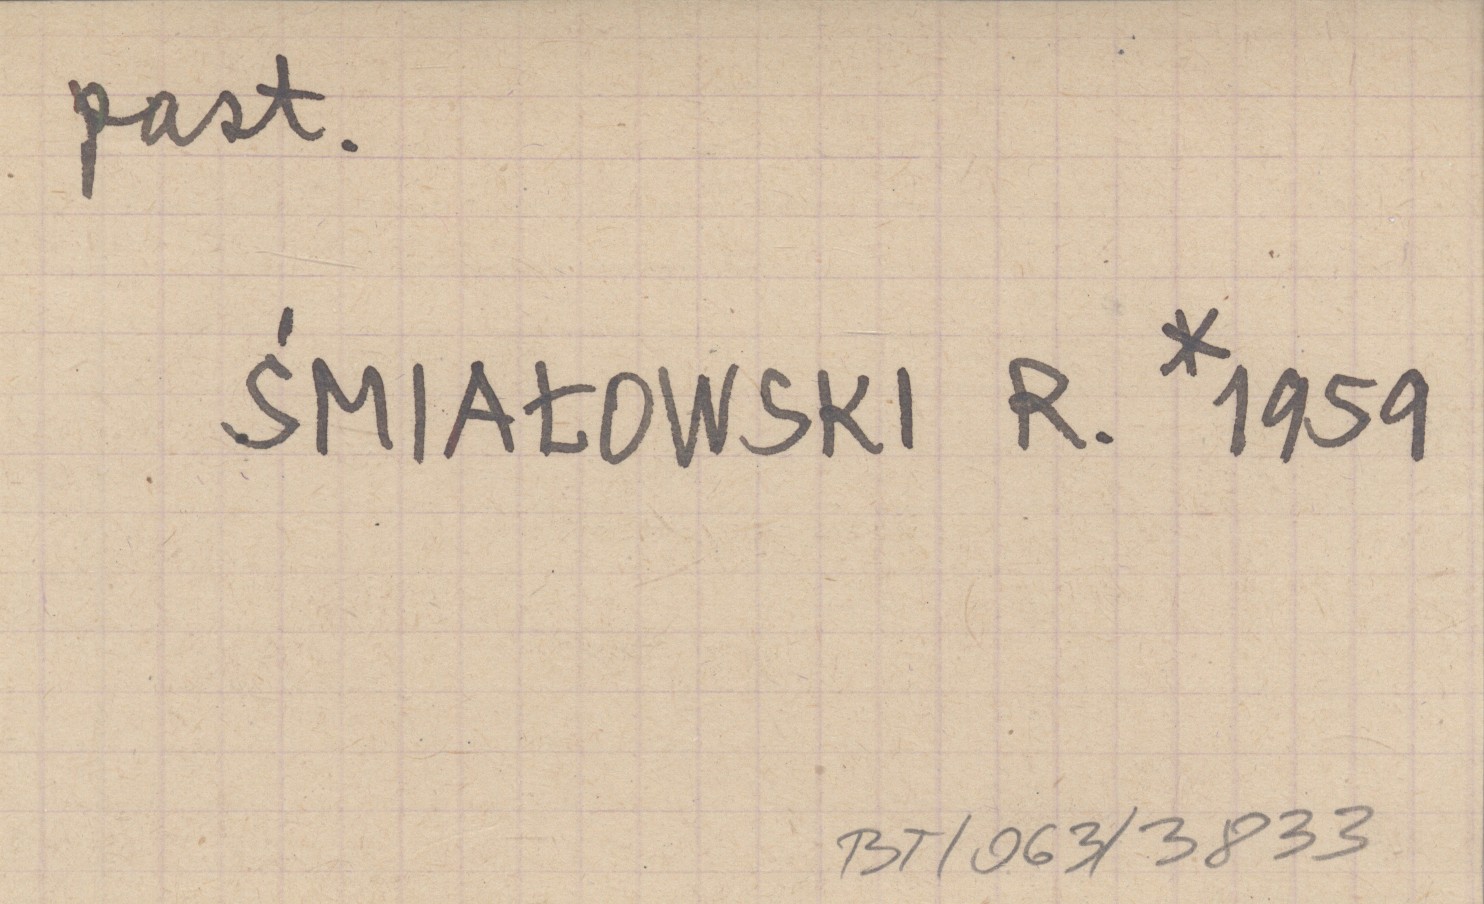 past.
ŚMIAŁOWSKI R. *1959
BT/063/3833